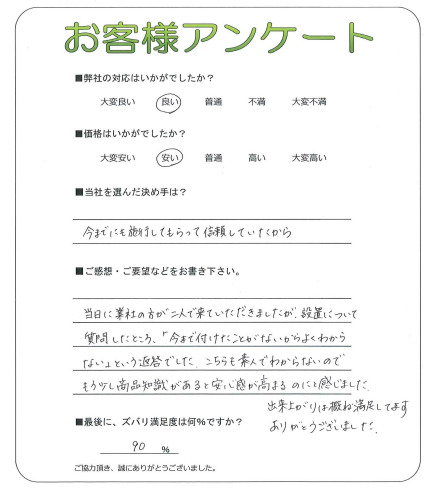 お客様アンケート
■弊社の対応はいかがでしたか？
大変良い 良い 普通 不満 大変不満
■価格はいかがでしたか？
大変安い 安い 普通 高い 大変高い
■当社を選んだ決め手は？
今までにも施行してもらって信頼していたから
■ご感想・ご要望などをお書き下さい。
当日に業社の方が二人で来ていただきましたが、設置について
質問したところ、「今まで付けたことがないからよくわから
ない」という返答でした。こちらも素人でわからないので
もう少し商品知識があると安心感が高まるのにと感じました。
出来上がりは概ね満足してます
ありがとうございました。
■最後に、ズバリ満足度は何％ですか？
90 %
ご協力頂き、誠にありがとうございました。